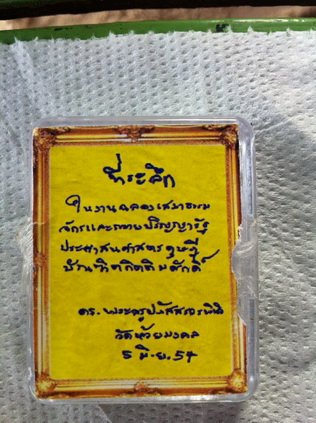 ที่ระลึก
ในงานฉลองเสมาธรรม
จักรและถวายปริญญารัฐ
ประศาสนศาสตรดุษฎี
บัณฑิตกิตติมศักดิ์
ดร. พระครู
วัดห้วยมงคล
5 มิ.ย. 54